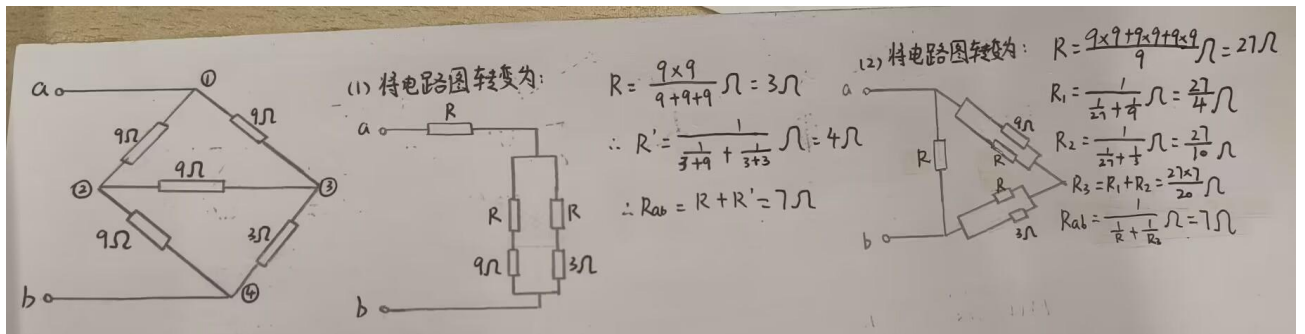 a
①
9Ω
9Ω
②
9Ω
③
9Ω
3Ω
b
④
(1) 将电路图转变为:
a
R
R
R
9Ω
3Ω
b
R = 9×9/(9+9+9) Ω = 3Ω
∴ R' = 1/(1/(3+9) + 1/(3+3)) Ω = 4Ω
∴ Rab = R + R' = 7Ω
(2) 将电路图转变为:
a
9Ω
R
R
R
3Ω
b
R = (9×9+9×9+9×9)/9 Ω = 27Ω
R₁ = 1/(1/27 + 1/9) Ω = 27/4 Ω
R₂ = 1/(1/27 + 1/3) Ω = 27/10 Ω
R₃ = R₁ + R₂ = 27×7/20 Ω
Rab = 1/(1/R + 1/R₃) Ω = 7Ω